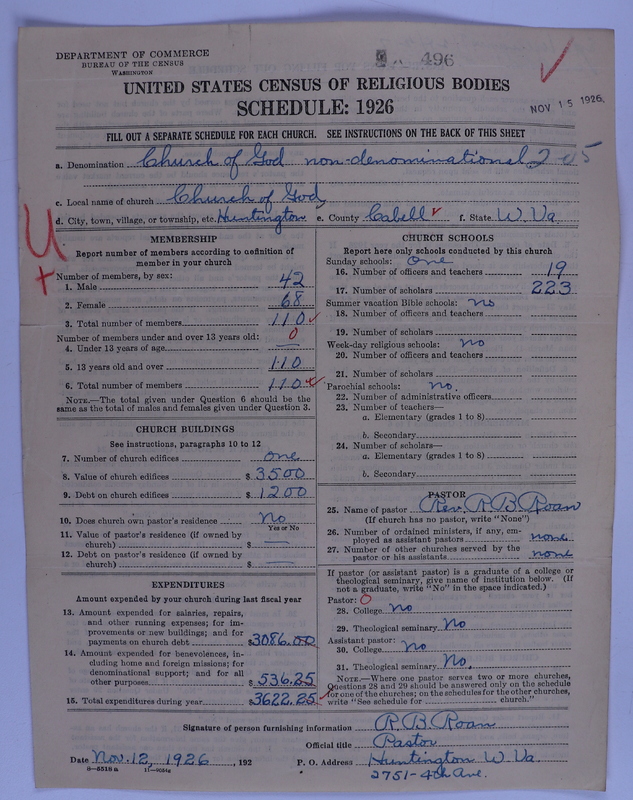 DEPARTMENT OF COMMERCE
BUREAU OF THE CENSUS
WASHINGTON
496
NOV 15 1926
UNITED STATES CENSUS OF RELIGIOUS BODIES
SCHEDULE: 1926
FILL OUT A SEPARATE SCHEDULE FOR EACH CHURCH. SEE INSTRUCTIONS ON THE BACK OF THIS SHEET
a. Denomination Church of God non-denominational
c. Local name of church Church of God
d. City, town, village, or township, etc. Huntington e. County Cabell f. State W. Va.
MEMBERSHIP
Report number of members according to definition of
member in your church
Number of members, by sex:
1. Male 42
2. Female 68
3. Total number of members 110
Number of members under and over 13 years old: 0
4. Under 13 years of age —
5. 13 years old and over 110
6. Total number of members 110
NOTE.—The total given under Question 6 should be
same as the total of males and females given under Question 3.
CHURCH BUILDINGS
See instructions, paragraphs 10 to 12
7. Number of church edifices one
8. Value of church edifices $ 3500
9. Debt on church edifices $ 1200
10. Does church own pastor's residence No
Yes or No
11. Value of pastor's residence (if owned by
church) $ —
12. Debt on pastor's residence (if owned by
church) $ —
EXPENDITURES
Amount expended by your church during last fiscal year
13. Amount expended for salaries, repairs,
and other running expenses; for im-
provements or new buildings; and for
payments on church debt $3086.00
14. Amount expended for benevolences, in-
cluding home and foreign missions; for
denominational support; and for all
other purposes $ 536.25
15. Total expenditures during year $3622.25
CHURCH SCHOOLS
Report here only schools conducted by this church
Sunday schools: one
16. Number of officers and teachers 19
17. Number of scholars 223
Summer vacation Bible schools: no
18. Number of officers and teachers
19. Number of scholars
Week-day religious schools: no
20. Number of officers and teachers
21. Number of scholars
Parochial schools: no.
22. Number of administrative officers
23. Number of teachers—
a. Elementary (grades 1 to 8)
b. Secondary
24. Number of scholars—
a. Elementary (grades 1 to 8)
b. Secondary
PASTOR
25. Name of pastor Rev. R B Roan
(If church has no pastor, write "None")
26. Number of ordained ministers, if any, em-
ployed as assistant pastors none
27. Number of other churches served by the
pastor or his assistants none
If pastor (or assistant pastor) is a graduate of a college or
theological seminary, give name of institution below. (If
not a graduate, write "No" in the space indicated.)
Pastor: 0
28. College no
29. Theological seminary No
Assistant pastor:
30. College no
31. Theological seminary No.
NOTE.—Where one pastor serves two or more churches,
Questions 28 and 29 should be answered only on the schedule
for one of the churches; on the schedules for the other churches,
write "See schedule for ______ church."
Signature of person furnishing information R. B. Roan
Official title Pastor
Date Nov. 12, 1926, 192 P. O. Address Huntington W. Va.
8—5518a
2751-4th Ave.